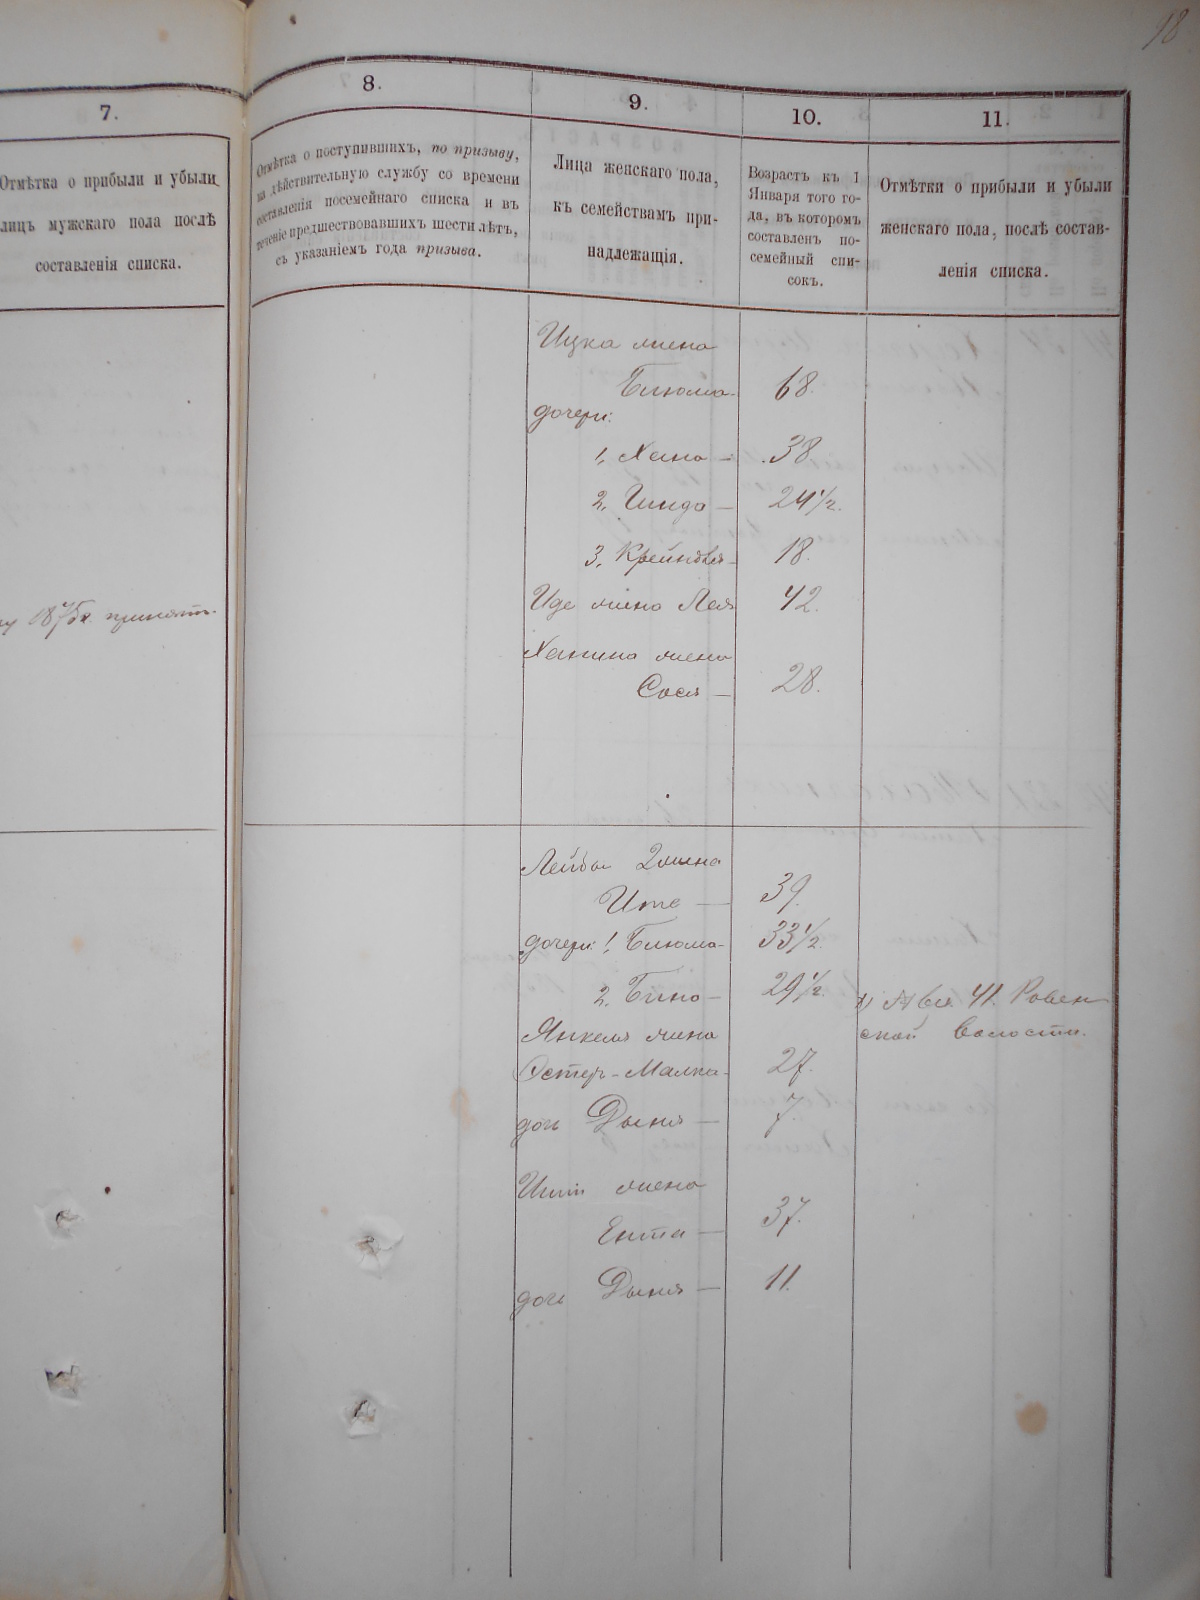 98
7.
Отмѣтка о прибыли и убыли
лицъ мужскаго пола послѣ
составленія списка.
18 принятъ.
8.
Отмѣтка о поступившихъ, по призыву,
на дѣйствительную службу со времени
составленія посемейнаго списка и въ
теченіе предшествовавшихъ шести лѣтъ,
съ указаніемъ года призыва.
9.
Лица женскаго пола,
къ семействамъ при-
надлежащія.
10.
Возрастъ къ 1
Января того го-
да, въ которомъ
составленъ по-
семейный спи-
сокъ.
11.
Отмѣтки о прибыли и убыли
женскаго пола, послѣ состав-
ленія списка.
Ицка жена
Блюма- 68.
дочери:
1, Хана — 38
2, Гинда — 24½.
3, 18.
Иде жена Лея 42.
Ханина жена
Сося — 28.
Лейбы 2 жена
Ите — 39.
дочери: 1, Блюма- 33½.
2, Бина — 29½.
Ровен
ской волости.
Янкеля жена
Эстер-Малка- 27.
дочь Двыня — 7.
жена
Ента — 37.
дочь Двыня — 11.